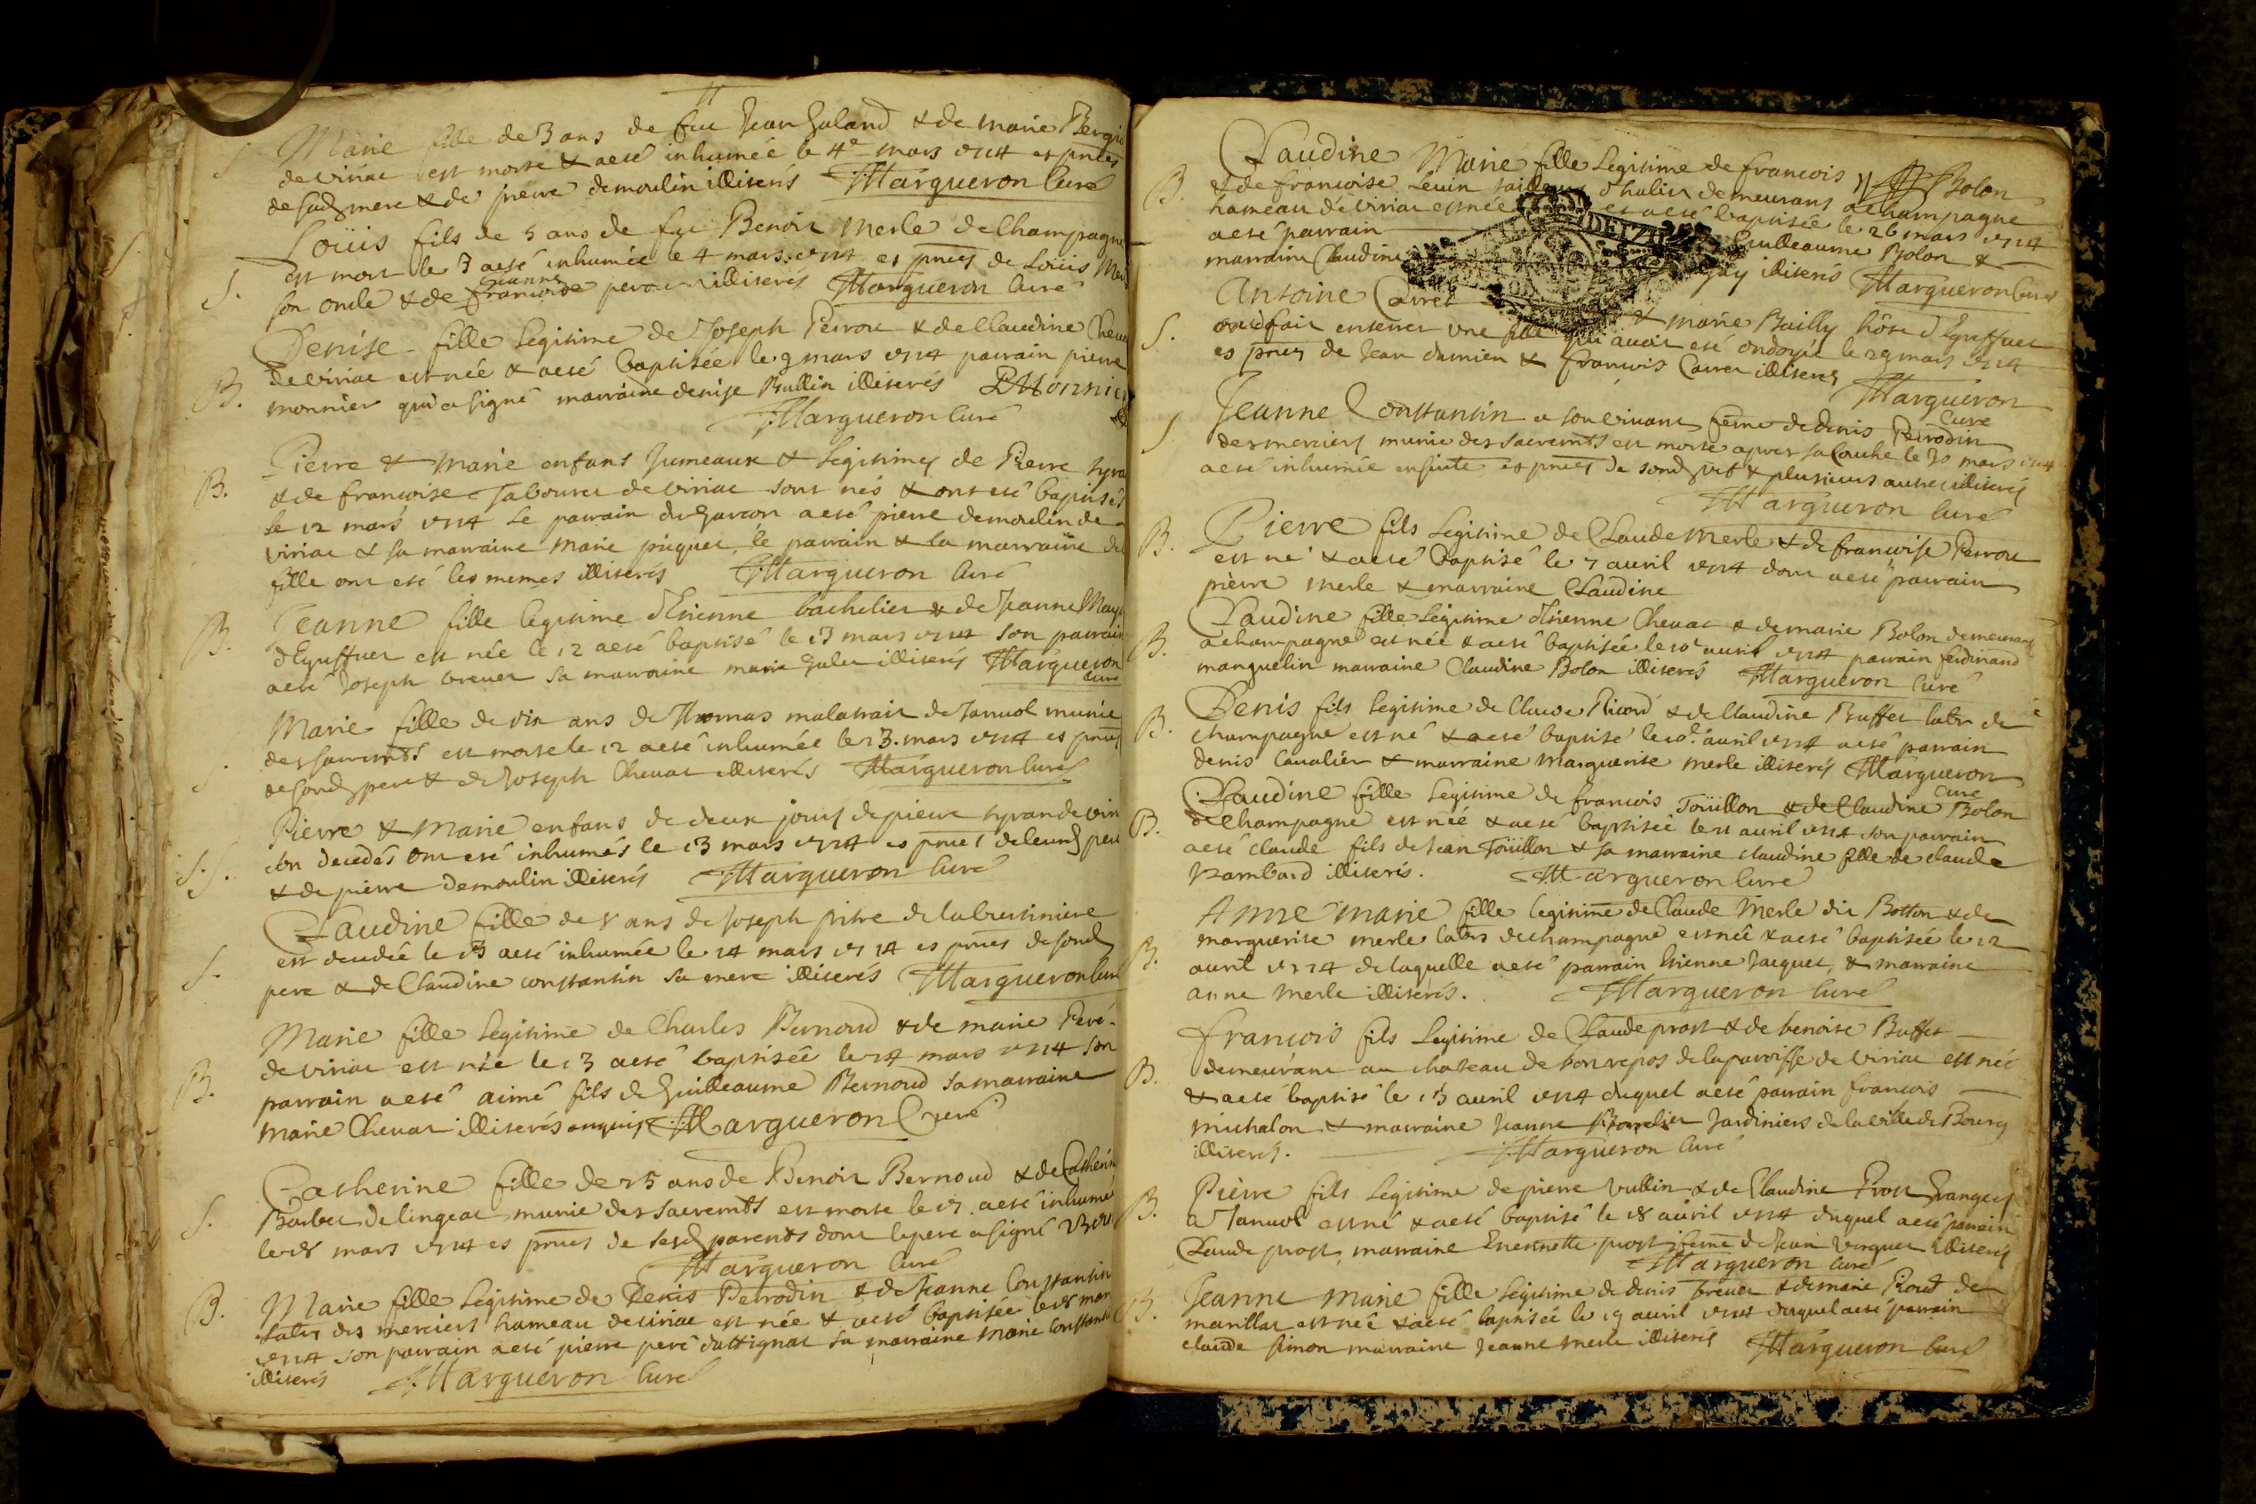 S. Marie fille de 3 ans de feu Jean Galand & de marie
de viriat est morte & a eté inhumée le 4e mars 1714 es pntes
de sad mere & de pierre demoulin illiterés Margueron Curé
S. Loüis fils de 5 ans de feu Benoit Merle de Champagne
est mort le 3 a eté inhumé le 4 mars 1714 es pntes de Loüis
son oncle & de illiterés Margueron Curé
B. Denise fille legitime de Joseph Perrou & de Claudine
de viriat est née & a eté baptisée le 9 mars 1714 parrain pierre
monnier qui a signé marraine denise Bullin illiterés PMonnier
Margueron Curé
B. Pierre & Marie enfans Jumeaux & legitimes de Pierre
& de francoise Tabouret de viriat sont nés & ont eté baptisés
le 12 mars 1714 le parrain du garcon a eté pierre demoulin de
viriat & sa marraine Marie piquet, le parrain & la marraine de
fille ont eté les memes illiterés Margueron Curé
B. Jeanne fille legitime d'Etienne bachelier & de Jeanne
d'Eguffuer est née le 12 a eté baptisé le 13 mars 1714 son parrain
a eté Joseph brevet sa marraine marie illiterés Margueron
Curé
S. Marie fille de dix ans de Thomas malatrait de Januol munie
des sacremts est morte le 12 a eté inhumée le 13. mars 1714 es pntes
de sond pere & de Joseph Chevat illiterés Margueron Curé
S.S. Pierre & Marie enfans de deux jours de pierre
decedés ont eté inhumés le 13 mars 1714 es pntes de leurd pere
& de pierre demoulin illiterés Margueron Curé
S. Claudine fille de 8 ans de Joseph pitre de la
est decedée le 13 a eté inhumée le 14 mars 1714 es pntes de sond
pere & de Claudine constantin sa mere illiterés Margueron Curé
B. Marie fille legitime de Charles Bernoud & de marie
de viriat est née le 13 a eté baptisée le 14 mars 1714 son
parrain a eté aimé fils de Guilleaume Bernoud sa marraine
Marie Chevat illiterés Margueron Curé
S. Catherine fille de 25 ans de Benoit Bernoud & de
Barbet de lingeat munie des sacremts est morte le 17. a eté inhumé
le 18 mars 1714 es pntes de sesd parents dont le pere a signé
Margueron Curé
B. Marie fille legitime de Denis Perrodin & de Jeanne Constantin
des merciers hameau de viriat est née & a eté baptisée le 18 mars
1714 son parrain a eté pierre d'attignat sa marraine Marie
illiterés Margueron Curé
B. Claudine Marie fille legitime de francois Bolon
& de francoise d'habits demeurans a Champagne
hameau de viriat est née et a eté baptisée le 26 mars 1714
a eté parrain Guilleaume Bolon &
marraine Claudine illiterés Margueron Curé
S. Antoine Carret & marie Bailly
ont fait enterrer une fille qui avoit eté ondoyée le 29 mars 1714
es pntes de Jean damien & francois Carret illiterés
Margueron
Curé
S. Jeanne Constantin a son vivant feme de denis Perrodin
des merciers munie des sacremts est morte apres sa Couche le 30 mars 1714
a eté inhumée ensuite es pntes de sond & plusieurs autres illiterés
Margueron Curé
B. Pierre fils legitime de Claude Merle & de francoise Perrou
est né & a eté baptisé le 7 avril 1714 dont a eté parrain
pierre Merle & marraine Claudine
B. Claudine fille legitime d'Etienne Chevat & de marie Bolon demeurans
a champagne est née & a eté baptisée le 10e avril 1714 parrain ferdinand
manguelin marraine Claudine Bolon illiterés Margueron Curé
B. Denis fils legitime de Claude Picord & de Claudine Buffet de
champagne est né & a eté baptisé le 10e. avril 1714 a eté parrain
denis Cavalier & marraine Marguerite Merle illiterés Margueron
Curé
B. Claudine fille legitime de francois Toüillon & de Claudine Bolon
de Champagne est née & a eté baptisée le 11 avril 1714 son parrain
a eté claude fils de Jean Toüillon & sa marraine claudine fille de claude
illiterés. Margueron Curé
B. Anne Marie fille legitime de Claude Merle dit Botton & de
marguerite merle de champagne est née & a eté baptisée le 12
avril 1714 de laquelle a eté parrain Etienne Jacquet, & marraine
anne Merle illiterés. Margueron Curé
B. francois fils legitime de Claude prost & de benoite Buffet
demeurans au chateau de bonrepos de la paroisse de viriat est né
& a eté baptisé le 13 avril 1714 duquel a eté parrain francois
Michalon & marraine Jeanne Jardiniers de la ville de Bourg
illiterés. Margueron Curé
B. Pierre fils legitime de pierre Vullin & de Claudine Prost Grangers
a Januol est né & a eté baptisé le 18 avril 1714 duquel a eté parrain
Claude prost, marraine Enemette prost feme de Jean illiterés
Margueron Curé
B. Jeanne Marie fille legitime de denis brevet & de marie de
marillat est née & a eté baptisée le 19 avril 1714 duquel a eté parrain
claude simon marraine Jeanne merle illiterés Margueron Curé